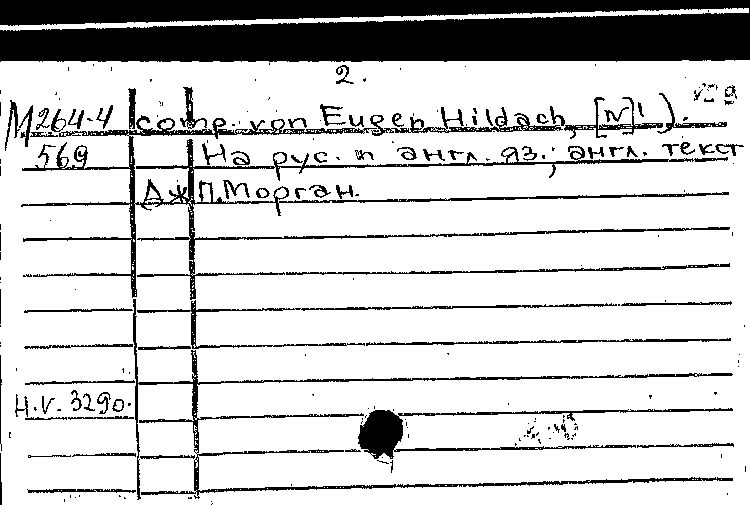 2.
М 264-4 comp. von Eugen Hildach, [N]1).
569 На рус. и англ. яз.; англ. текст
Дж.П.Морган.
H.V. 3290.